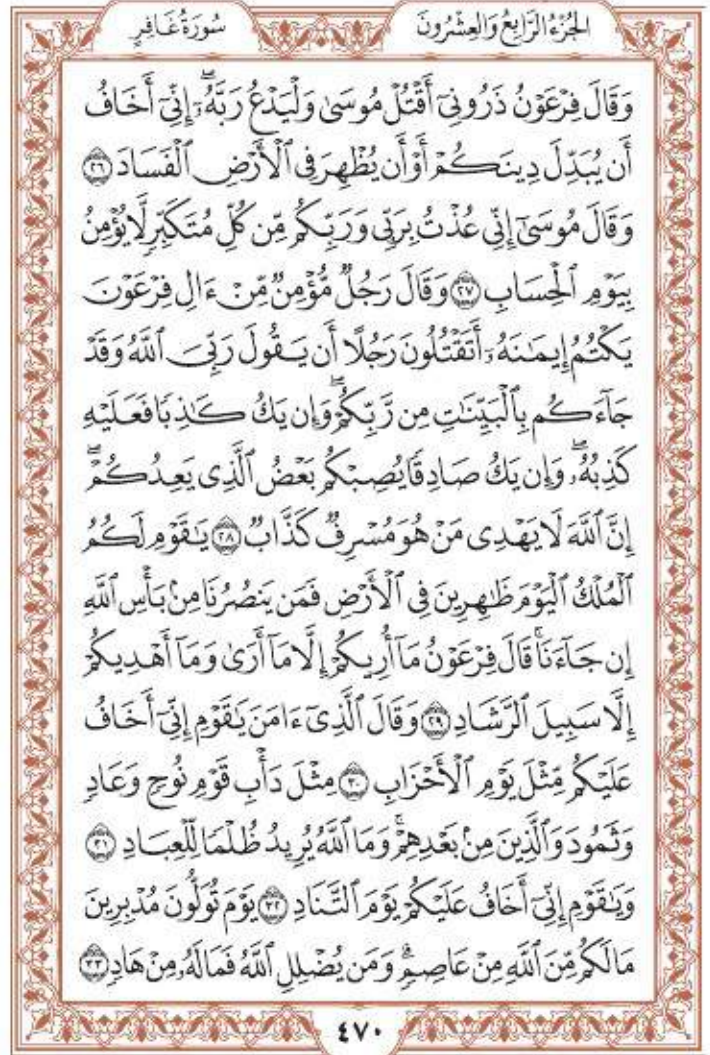 الجُزْءُ الرَّابِعُ وَالعِشْرُونَ
سُورَةُ غَافِرٍ
وَقَالَ فِرْعَوْنُ ذَرُونِيٓ أَقْتُلْ مُوسَىٰ وَلْيَدْعُ رَبَّهُۥٓۖ إِنِّيٓ أَخَافُ
أَن يُبَدِّلَ دِينَكُمْ أَوْ أَن يُظْهِرَ فِي ٱلْأَرْضِ ٱلْفَسَادَ ٢٦
وَقَالَ مُوسَىٰٓ إِنِّي عُذْتُ بِرَبِّي وَرَبِّكُم مِّن كُلِّ مُتَكَبِّرٍ لَّا يُؤْمِنُ
بِيَوْمِ ٱلْحِسَابِ ٢٧ وَقَالَ رَجُلٌ مُّؤْمِنٌ مِّنْ ءَالِ فِرْعَوْنَ
يَكْتُمُ إِيمَٰنَهُۥٓ أَتَقْتُلُونَ رَجُلًا أَن يَقُولَ رَبِّيَ ٱللَّهُ وَقَدْ
جَآءَكُم بِٱلْبَيِّنَٰتِ مِن رَّبِّكُمْۖ وَإِن يَكُ كَٰذِبًا فَعَلَيْهِ
كَذِبُهُۥۖ وَإِن يَكُ صَادِقًا يُصِبْكُم بَعْضُ ٱلَّذِي يَعِدُكُمْۖ
إِنَّ ٱللَّهَ لَا يَهْدِي مَنْ هُوَ مُسْرِفٌ كَذَّابٌ ٢٨ يَٰقَوْمِ لَكُمُ
ٱلْمُلْكُ ٱلْيَوْمَ ظَٰهِرِينَ فِي ٱلْأَرْضِ فَمَن يَنصُرُنَا مِنۢ بَأْسِ ٱللَّهِ
إِن جَآءَنَاۚ قَالَ فِرْعَوْنُ مَآ أُرِيكُمْ إِلَّا مَآ أَرَىٰ وَمَآ أَهْدِيكُمْ
إِلَّا سَبِيلَ ٱلرَّشَادِ ٢٩ وَقَالَ ٱلَّذِيٓ ءَامَنَ يَٰقَوْمِ إِنِّيٓ أَخَافُ
عَلَيْكُم مِّثْلَ يَوْمِ ٱلْأَحْزَابِ ٣٠ مِثْلَ دَأْبِ قَوْمِ نُوحٍ وَعَادٍ
وَثَمُودَ وَٱلَّذِينَ مِنۢ بَعْدِهِمْۚ وَمَا ٱللَّهُ يُرِيدُ ظُلْمًا لِّلْعِبَادِ ٣١
وَيَٰقَوْمِ إِنِّيٓ أَخَافُ عَلَيْكُمْ يَوْمَ ٱلتَّنَادِ ٣٢ يَوْمَ تُوَلُّونَ مُدْبِرِينَ
مَا لَكُم مِّنَ ٱللَّهِ مِنْ عَاصِمٍۗ وَمَن يُضْلِلِ ٱللَّهُ فَمَا لَهُۥ مِنْ هَادٍ ٣٣
٤٧٠